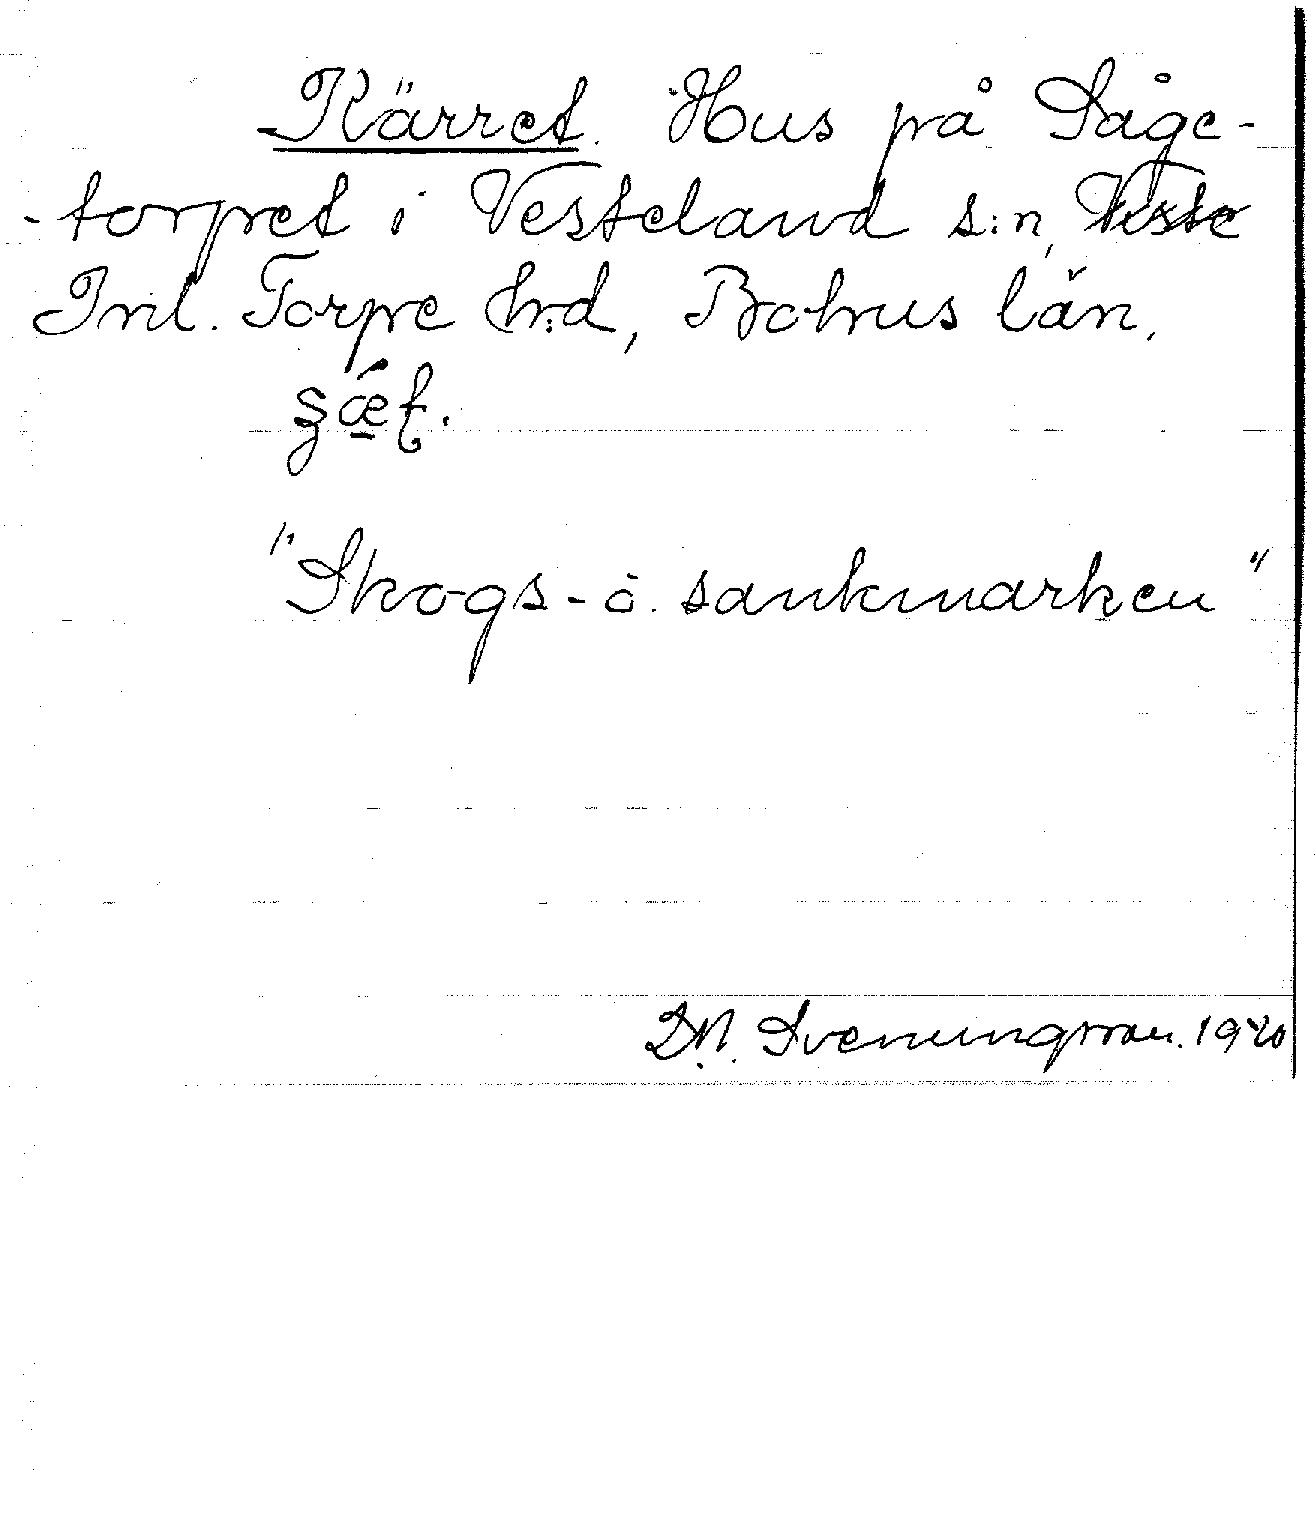 Kärret. Hus på Såge-
-torpet i Vesteland s:n,
Inl. Torpe h:d, Bohus län.
"Skogs- o. sankmarken"
D.N. Svenungsson. 1920